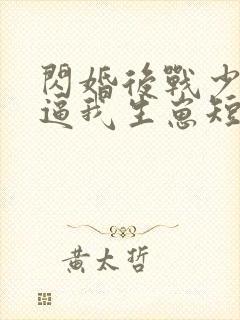 閃婚後戰少
逼我生崽短
黃太哲